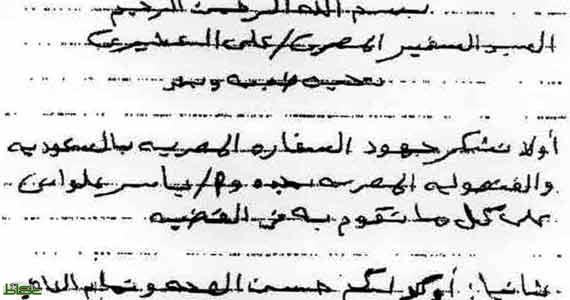 بسم الله الرحمن الرحيم
السيد السفير المصرى / على العشيرى
تحيه طيبه وبعد
أولا نشكر جهود السفاره المصريه بالسعوديه
والقنصليه المصريه بجده وم/ ياسر علوانى
على كل ما تقوم به فى القضيه
ثانيا : أوكلا لكم حسن الصحه وتمام